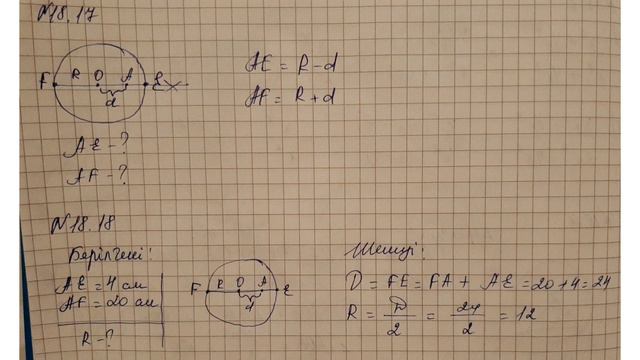 N18.17
F R O A E
d
AE = R - d
AF = R + d
AE - ?
AF - ?
N18.18
Берілгені:
AE = 4 см
AF = 20 см
R - ?
F R O A E
d
Шешуі:
D = FE = FA + AE = 20 + 4 = 24
R = D/2 = 24/2 = 12